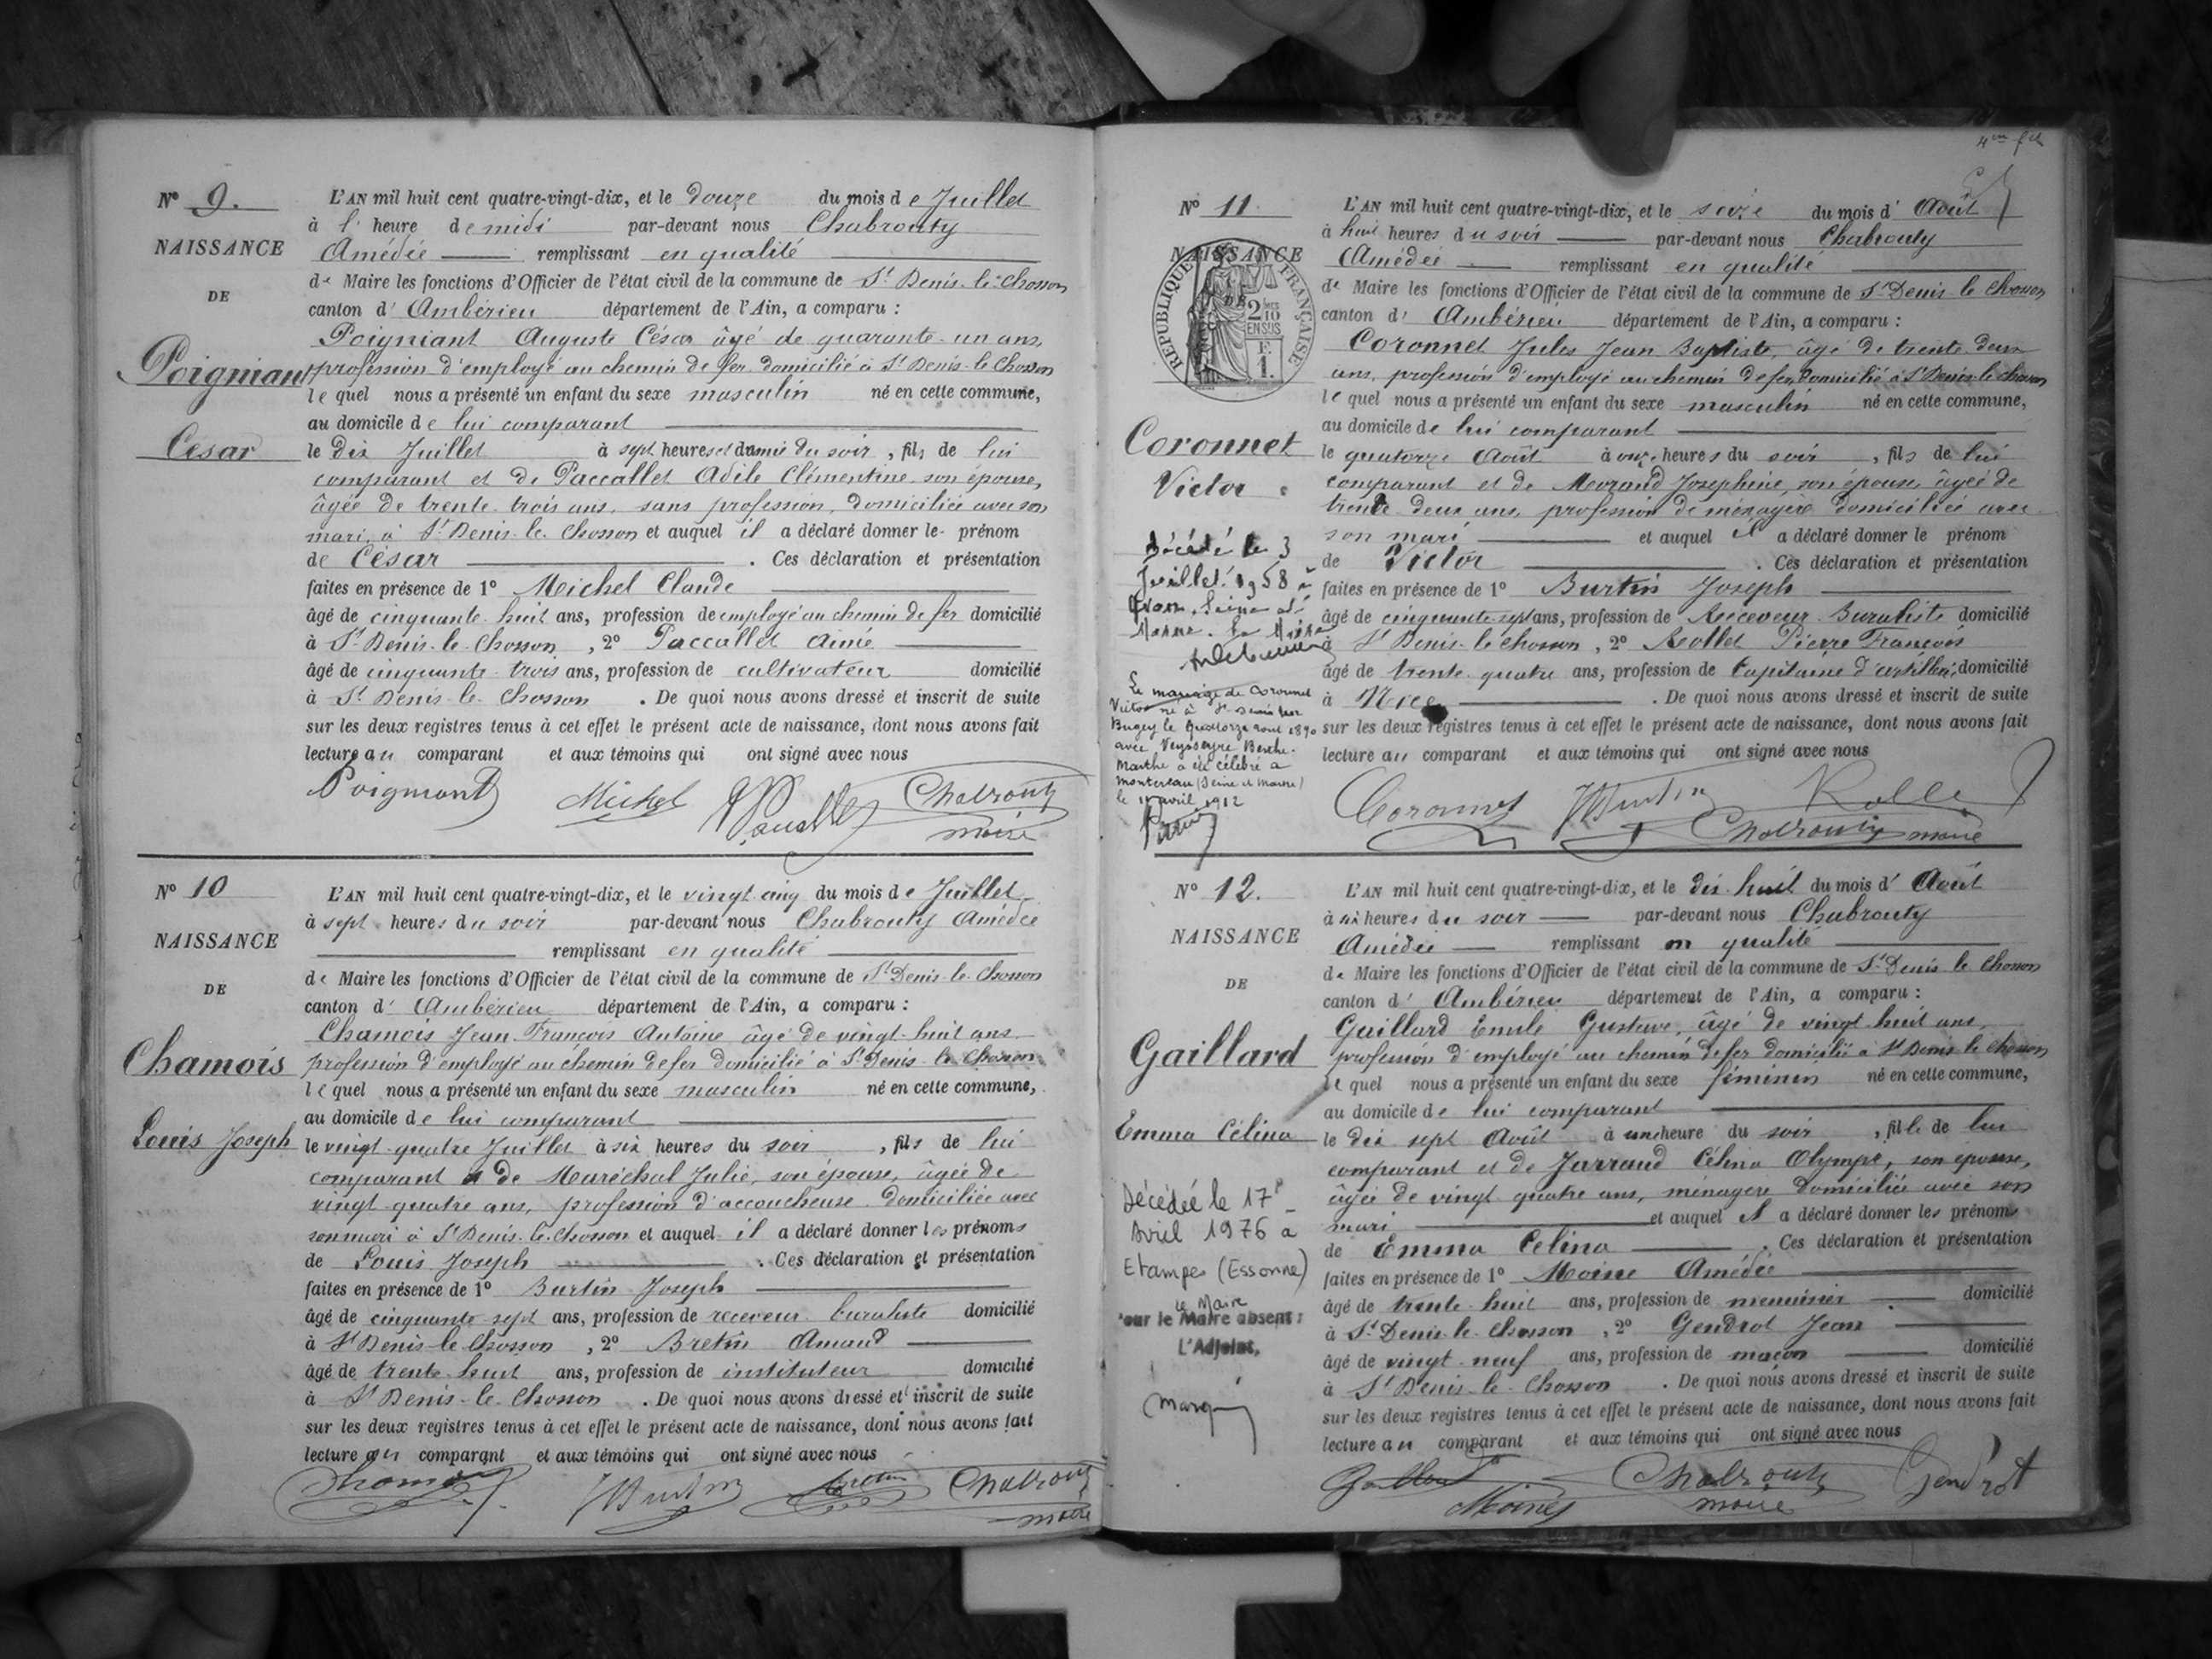 N° 9.
NAISSANCE
DE
Poigniant
César
L'AN mil huit cent quatre-vingt-dix, et le douze du mois de Juillet
à l' heure de midi par-devant nous Chabrouty
Amédée remplissant en qualité
de Maire les fonctions d'Officier de l'état civil de la commune de St Denis-le-Chosson
canton d' Ambérieu département de l'Ain, a comparu :
Poigniant Auguste César âgé de quarante-un ans,
profession d'employé au chemin de fer domicilié à St Denis-le-Chosson
lequel nous a présenté un enfant du sexe masculin né en cette commune,
au domicile de lui comparant
le dix Juillet à sept heures et demie du soir, fils de lui
comparant et de Paccallet Adèle Clémentine son épouse,
âgée de trente trois ans, sans profession, domiciliée avec son
mari, à St Denis-le-Chosson et auquel il a déclaré donner le prénom
de César . Ces déclaration et présentation
faites en présence de 1° Michel Claude
âgé de cinquante huit ans, profession de employé au chemin de fer domicilié
à St Denis-le-Chosson, 2° Paccallet Aimé
âgé de cinquante trois ans, profession de cultivateur domicilié
à St Denis-le-Chosson . De quoi nous avons dressé et inscrit de suite
sur les deux registres tenus à cet effet le présent acte de naissance, dont nous avons fait
lecture au comparant et aux témoins qui ont signé avec nous
Poigniant Michel Chabrouty
maire
N° 10
NAISSANCE
DE
Chamois
Louis Joseph
L'AN mil huit cent quatre-vingt-dix, et le vingt cinq du mois de Juillet
à sept heures du soir par-devant nous Chabrouty Amédée
remplissant en qualité
de Maire les fonctions d'Officier de l'état civil de la commune de St Denis-le-Chosson
canton d' Ambérieu département de l'Ain, a comparu :
Chamois Jean François Antoine âgé de vingt-huit ans
profession d'employé au chemin de fer domicilié à St Denis-le-Chosson
lequel nous a présenté un enfant du sexe masculin né en cette commune,
au domicile de lui comparant
le vingt-quatre Juillet à six heures du soir, fils de lui
comparant & de Maréchal Julie, son épouse, âgée de
vingt-quatre ans, profession d'accoucheuse domiciliée avec
son mari à St Denis-le-Chosson et auquel il a déclaré donner les prénoms
de Louis Joseph . Ces déclaration et présentation
faites en présence de 1° Burtin Joseph
âgé de cinquante-sept ans, profession de receveur buraliste domicilié
à St Denis-le-Chosson, 2° Bretin Amand
âgé de trente-huit ans, profession de instituteur domicilié
à St Denis-le-Chosson . De quoi nous avons dressé et inscrit de suite
sur les deux registres tenus à cet effet le présent acte de naissance, dont nous avons fait
lecture au comparant et aux témoins qui ont signé avec nous
Chamois Burtin Bretin Chabrouty
maire
N° 11
NAISSANCE
DE
RÉPUBLIQUE FRANÇAISE
2/10 EN SUS
F.
1.
Coronnet
Victor
Décédé le 3
Juillet 1958 à
Seine et
Marne. Le Maire
Le mariage de Coronnet
Victor né à St Denis en
Bugey le quatorze août 1890
avec Veysseyre Berthe
Marthe a été célébré à
Montereau (Seine et Marne)
le avril 1912
L'AN mil huit cent quatre-vingt-dix, et le seize du mois d' Août
à huit heures du soir par-devant nous Chabrouty
Amédée remplissant en qualité
de Maire les fonctions d'Officier de l'état civil de la commune de St Denis le Chosson
canton d' Ambérieu département de l'Ain, a comparu :
Coronnet Jules Jean Baptiste, âgé de trente-deux
ans, profession d'employé au chemin de fer domicilié à St Denis le Chosson
lequel nous a présenté un enfant du sexe masculin né en cette commune,
au domicile de lui comparant
le quatorze Août à onze heures du soir, fils de lui
comparant et de Morand Josephine, son épouse, âgée de
trente deux ans, profession de ménagère domiciliée avec
son mari et auquel il a déclaré donner le prénom
de Victor . Ces déclaration et présentation
faites en présence de 1° Burtin Joseph
âgé de cinquante-sept ans, profession de Receveur Buraliste domicilié
à St Denis-le-Chosson, 2° Rollet Pierre François
âgé de trente-quatre ans, profession de Capitaine d'artillerie domicilié
à Nice . De quoi nous avons dressé et inscrit de suite
sur les deux registres tenus à cet effet le présent acte de naissance, dont nous avons fait
lecture au comparant et aux témoins qui ont signé avec nous
Coronnet Burtin Rollet
Chabrouty maire
N° 12.
NAISSANCE
DE
Gaillard
Emma Célina
Décédée le 17
Avril 1976 à
Etampes (Essonne)
Le Maire
Pour le Maire absent :
L'Adjoint,
L'AN mil huit cent quatre-vingt-dix, et le dix-huit du mois d' Août
à six heures du soir par-devant nous Chabrouty
Amédée remplissant en qualité
de Maire les fonctions d'Officier de l'état civil de la commune de St Denis le Chosson
canton d' Ambérieu département de l'Ain, a comparu :
Gaillard Emile Gustave, âgé de vingt-huit ans,
profession d'employé au chemin de fer domicilié à St Denis le Chosson
lequel nous a présenté un enfant du sexe féminin né en cette commune,
au domicile de lui comparant
le dix sept Août à une heure du soir, fille de lui
comparant et de Jarraud Célina Olympe, son épouse,
âgée de vingt quatre ans, ménagère domiciliée avec son
mari et auquel il a déclaré donner les prénoms
de Emma Célina . Ces déclaration et présentation
faites en présence de 1° Moine Amédée
âgé de trente-huit ans, profession de menuisier domicilié
à St Denis-le-Chosson, 2° Gendrot Jean
âgé de vingt-neuf ans, profession de maçon domicilié
à St Denis-le-Chosson . De quoi nous avons dressé et inscrit de suite
sur les deux registres tenus à cet effet le présent acte de naissance, dont nous avons fait
lecture au comparant et aux témoins qui ont signé avec nous
Gaillard Chabrouty Gendrot
Moine maire